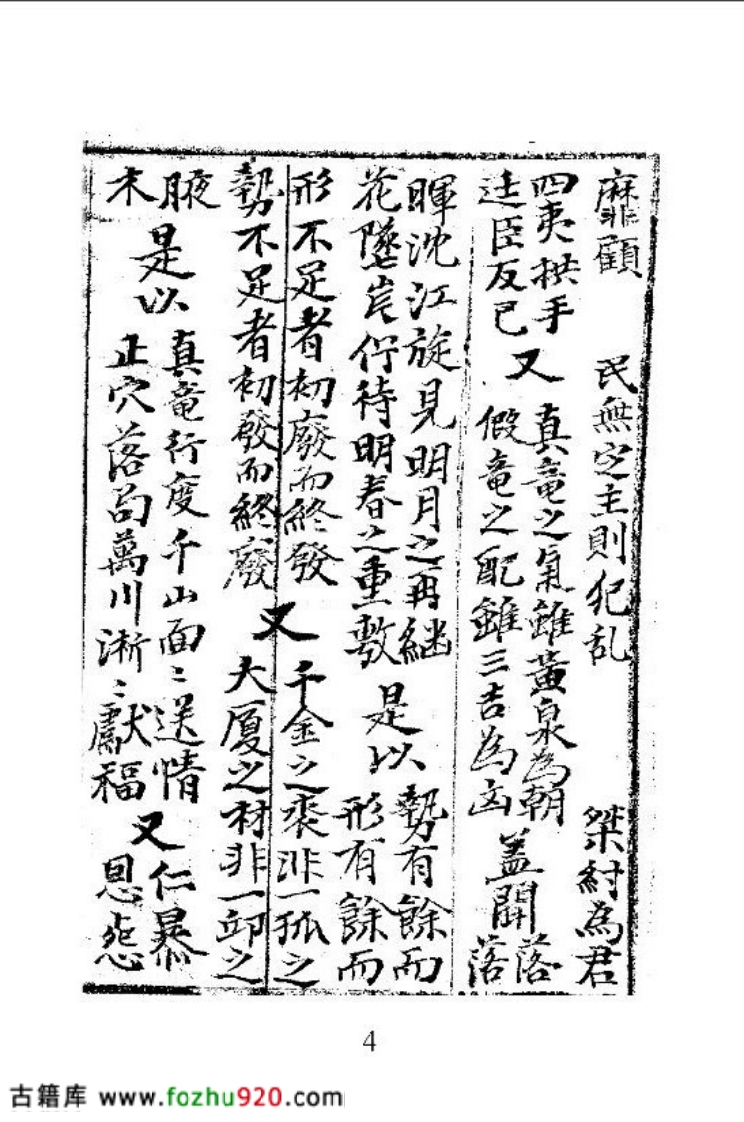 靡顧 民無定主則犯乱 桀紂為君
四夷拱手
迋臣反已
又
真竜之氣雖黃泉為朝
假竜之配雖三吉為凶
盖聞
落
落
暉沈江旋見明月之再繼
花墜岸佇待明春之重敷
是以
勢有餘而
形有餘而
形不足者初廢而終發
勢不足者初發而終廢
又
千金之裘非一狐之
大厦之材非一邱之
腋
末
是以
真竜行度千山面〻送情
正穴落局萬川淅〻獻福
又
仁暴
恩怨
4
古籍库 www.fozhu920.com